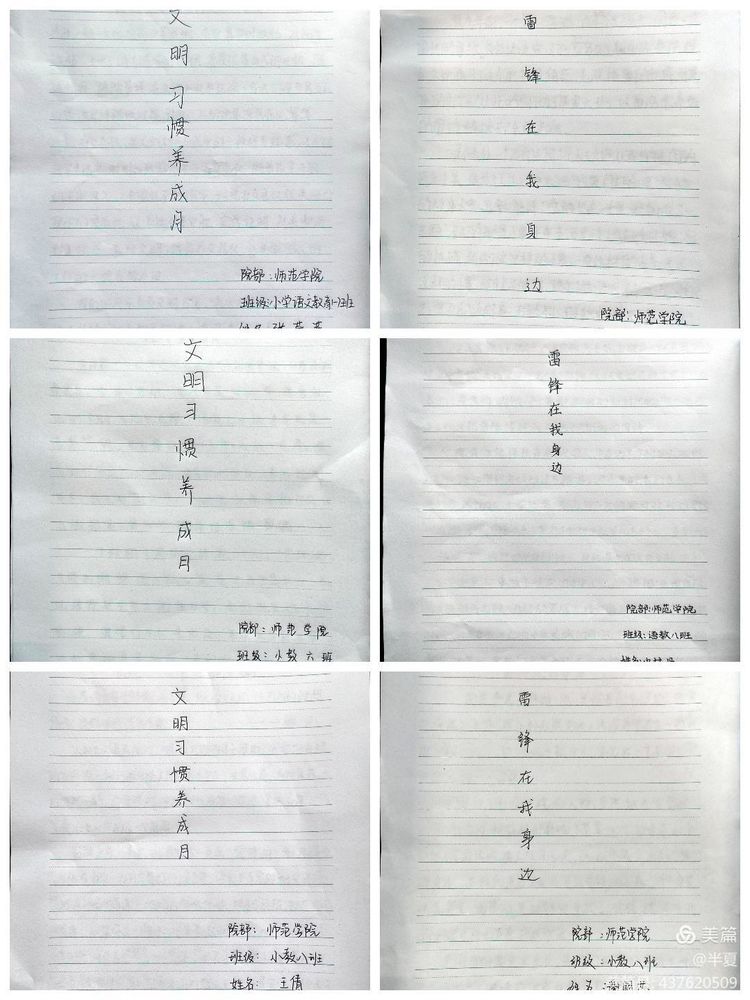 文
明
习
惯
养
成
月
院部：师范学院
班级：小学语文教育八班
雷
锋
在
我
身
边
院部：师范学院
文
明
习
惯
养
成
月
院部：师范学院
班级：小教六班
雷
锋
在
我
身
边
院部：师范学院
班级：语教八班
文
明
习
惯
养
成
月
院部：师范学院
班级：小教八班
姓名：王倩
雷
锋
在
我
身
边
院部：师范学院
班级：小教八班
美篇
@半夏
437620509